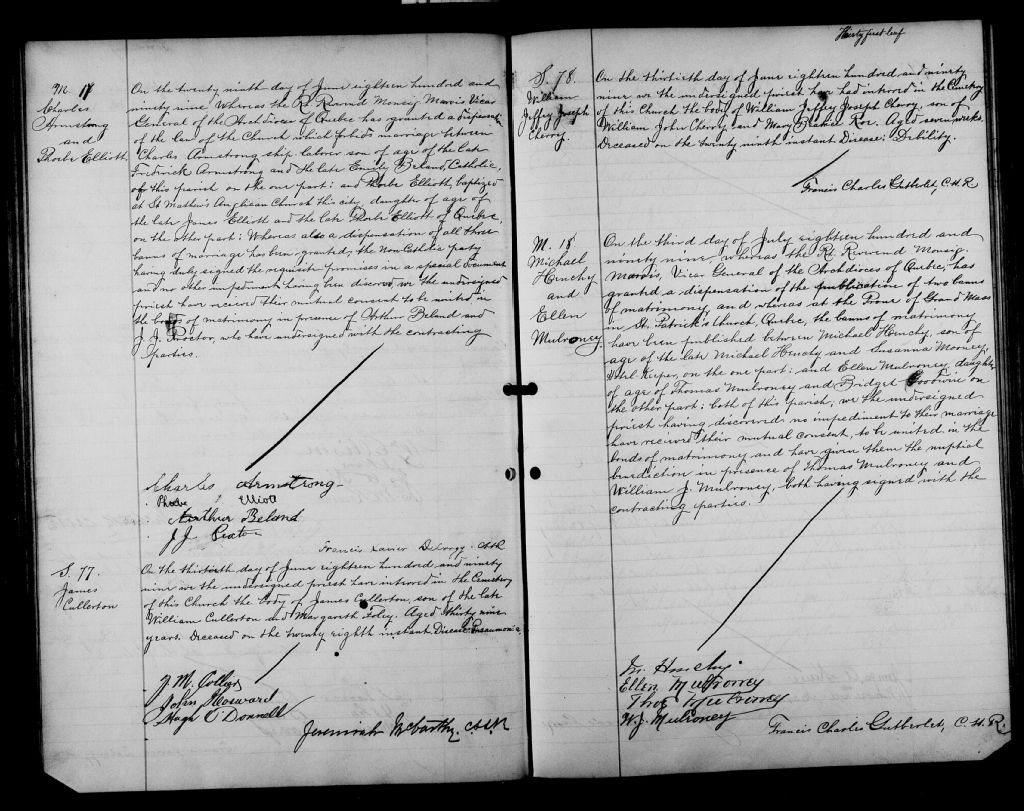 M 17
Charles
Armstrong
and
Phoebe Elliott
On the twenty ninth day of June eighteen hundred and
ninety nine Whereas the Rt Revrend Monsig. Marois Vicar
General of the Archdiocese of Quebec has granted a dispensation
of the law of the Church which forbids marriage between
Charles Armstrong ship laborer son of age of the late
Frederick Armstrong and the late Emily Beland, Catholic,
of this parish on the one part: and Phoebe Elliott, baptized
at St Mathew's Anglican Church this city, daughter of age of
the late James Elliott and the late Phoebe Elliott of Quebec,
on the other part: Whereas also a dispensation of all three
banns of marriage has been granted, the Non Catholic party
having duly signed the requisite promises in a special document
and no other impediment having been discovered we the undersigned
priest have received their mutual consent to be united in
the bonds of matrimony in presence of Arthur Beland and
J. J. Proctor who have undersigned with the contracting
parties.
Charles Armstrong
Phoebe Elliott
Arthur Beland
J. J.
Francis Xavier C.SS.R
S. 77.
James
Cullerton
On the thirtieth day of June eighteen hundred and ninety
nine we the undersigned priest have interred in the Cemetery
of this Church the body of James Cullerton, son of the late
William Cullerton and Margareth Foley. Aged thirty nine
years. Deceased on the twenty eighth instant. Disease: Pneumonia.
J. M. Collier
John Howard
Hugh O'Donnell
Jeremiah McCarthy. C.SS.R
Thirty first leaf
S. 78.
William
Jeffry Joseph
Chevry.
On the thirtieth day of June eighteen hundred and ninety
nine we the undersigned priest have had interred in the Cemetery
of this Church the body of William Jeffry Joseph Chevry, son of
William John Chevry and Mary Blake Roe. Aged seven weeks.
Deceased on the twenty ninth instant Disease: Debility.
Francis Charles Gutberlet, C.SS.R
M. 18
Michael
Henchy
and
Ellen
Mulroney
On the third day of July eighteen hundred and
ninety nine, whereas the Rt. Reverend Monsig.
Marois, Vicar General of the Archdiocese of Quebec, has
granted a dispensation of the publication of two banns
of matrimony, and whereas at the Prone of Grand Mass
in St. Patrick's Church, Quebec, the banns of matrimony
have been published between Michael Henchy, son of
age of the late Michael Henchy and Susanna Mooney,
Hotel Keeper, on the one part: and Ellen Mulroney, daughter
of age of Thomas Mulroney and Bridget Goodwin on
the other part: both of this parish, we the undersigned
priest having discovered no impediment to their marriage
have received their mutual consent, to be united in the
bonds of matrimony and have given them the nuptial
benediction in presence of Thomas Mulroney and
William J. Mulroney, both having signed with the
contracting parties.
M. Henchy
Ellen Mulroney
Thos Mulroney
W. J. Mulroney
Francis Charles Gutberlet, C.SS.R.